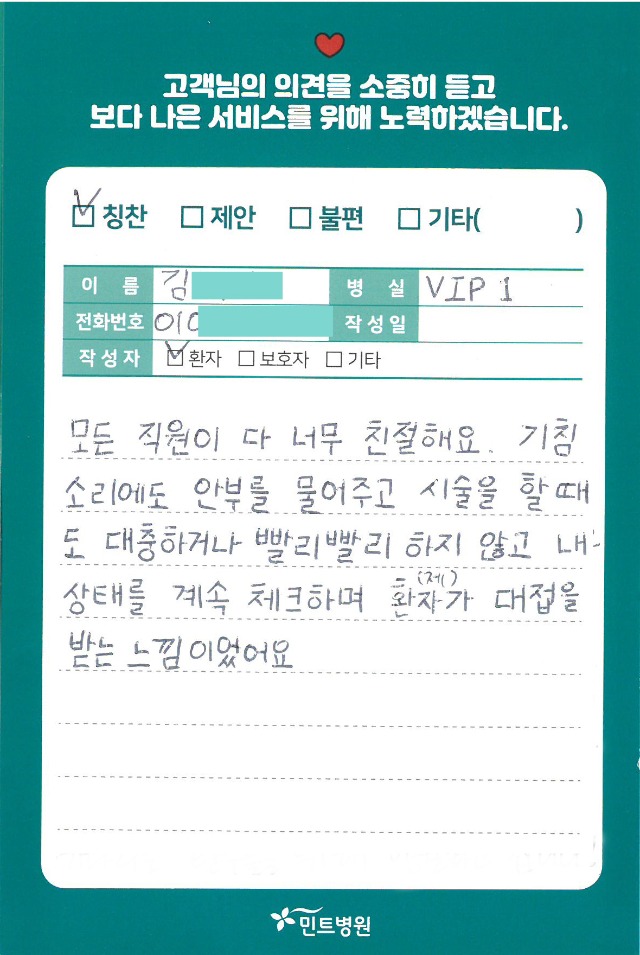 고객님의 의견을 소중히 듣고
보다 나은 서비스를 위해 노력하겠습니다.
칭찬 제안 불편 기타( )
이 름 김 병 실 VIP 1
전화번호 010 작성일
작성자 환자 보호자 기타
모든 직원이 다 너무 친절해요. 기침
소리에도 안부를 물어주고 시술을 할때
도 대충하거나 빨리빨리 하지 않고 내
상태를 계속 체크하며 환자(제)가 대접을
받는 느낌이었어요
민트병원